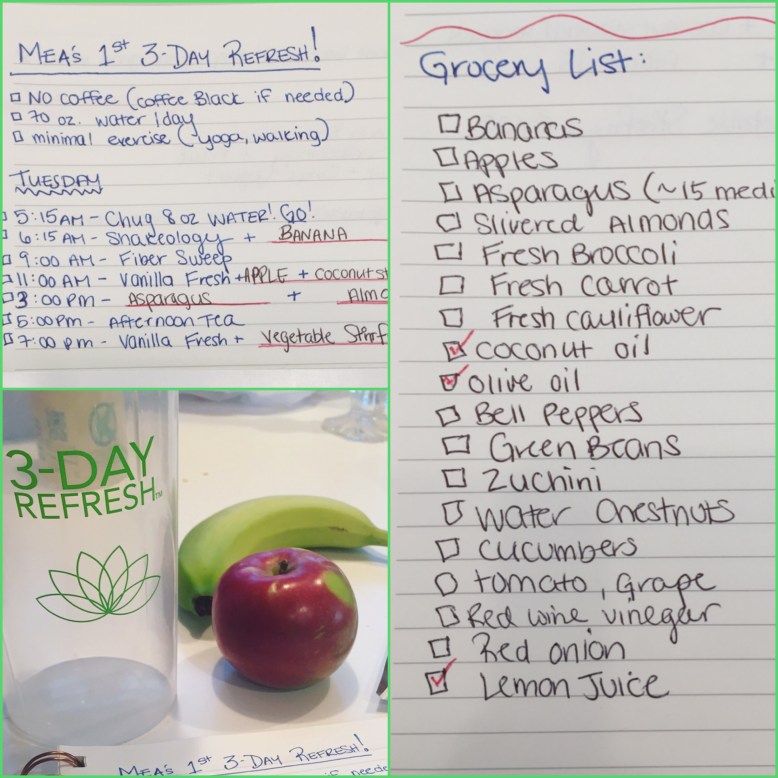 MEA'S 1ST 3-DAY REFRESH!
NO COFFEE (COFFEE BLACK if needed)
70 oz. water /day
minimal exercise (yoga, walking)
TUESDAY
5:15AM - Chug 8 oz WATER! GO!
6:15 AM - Shakeology + BANANA
9:00 AM - Fiber Sweep
11:00 AM - Vanilla Fresh + APPLE + coconut
3:00 PM - Asparagus +
5:00 Pm - Afternoon Tea
7:00 pm - Vanilla Fresh + Vegetable
Grocery List:
Bananas
Apples
Asparagus (~15
Slivered Almonds
Fresh Broccoli
Fresh Carrot
Fresh Cauliflower
Coconut oil
Olive oil
Bell Peppers
Green Beans
Zuchini
Water Chestnuts
Cucumbers
tomato, Grape
Red wine vinegar
Red onion
Lemon Juice
3-DAY
REFRESH™
MEA'S 1ST 3-DAY REFRESH!
if